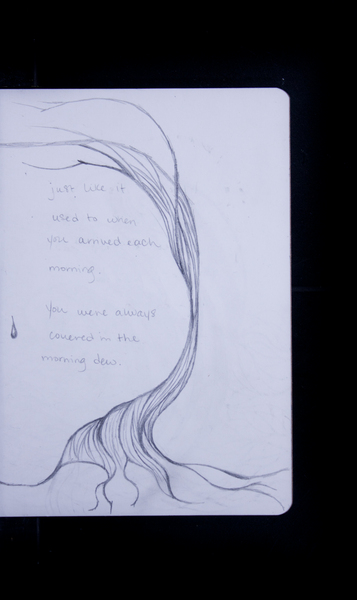 just like it
used to when
you arrived each
morning.
you were always
covered in the
morning dew.